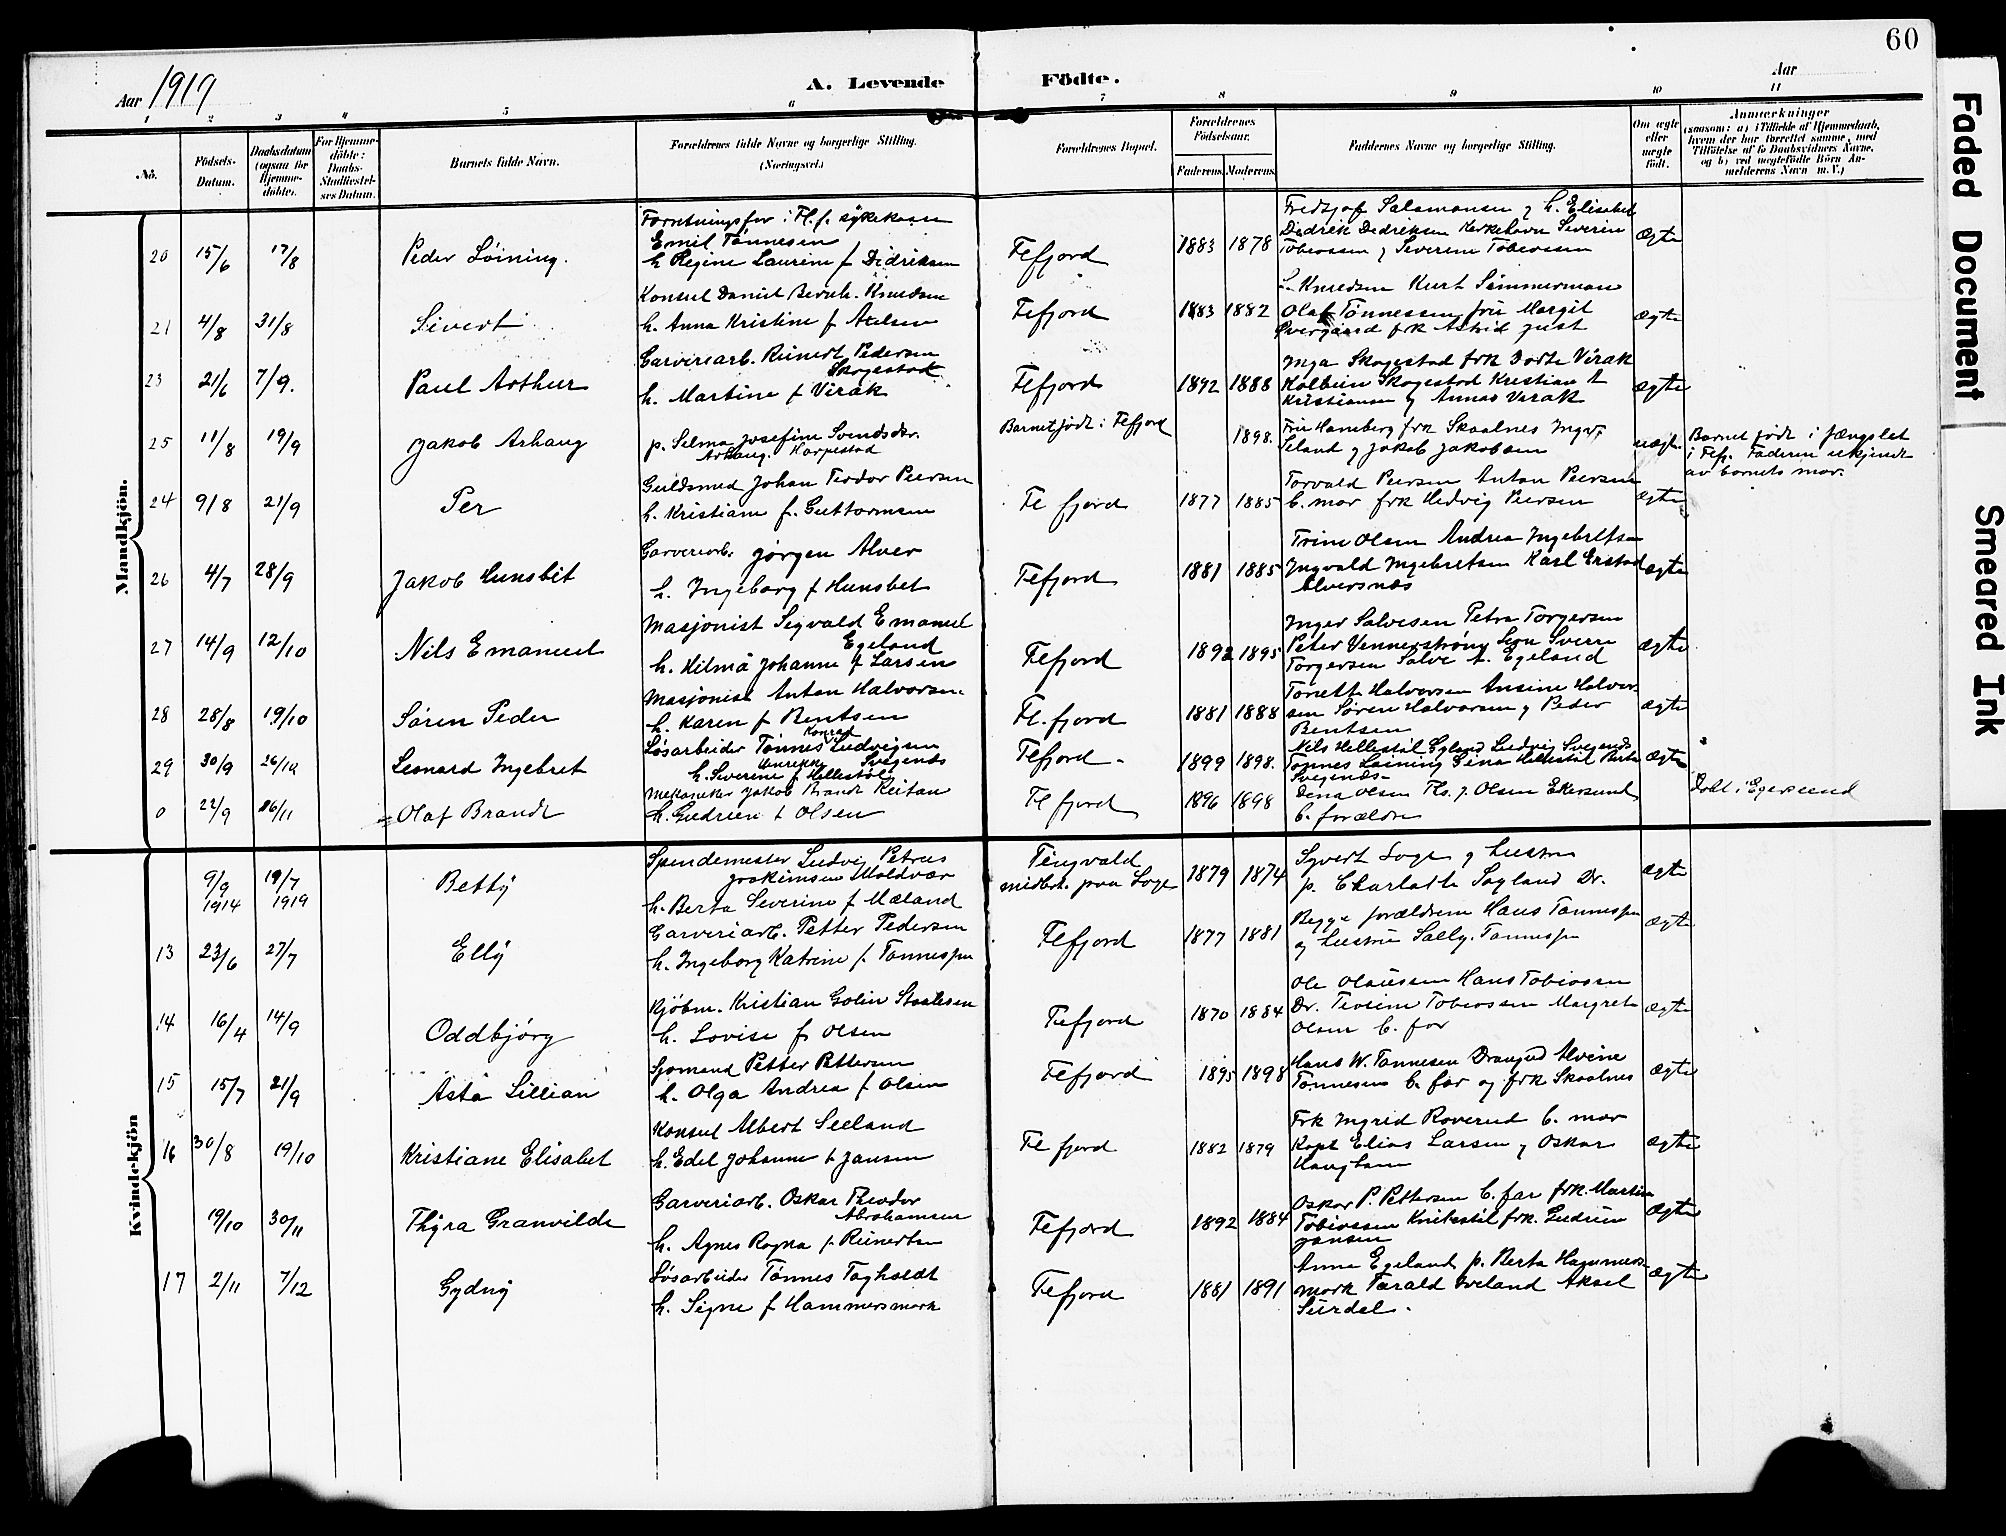 60
Aar 1919
A. Levende Födte.
Aar
1 2 3 4 5 6 7 8 9 10 11
No.
Födsels-Datum.
Daabsdatum (ogsaa for Hjemmedöbte).
For Hjemmedöbte: Daabs-Stadfæstelses Datum.
Barnets fulde Navn.
Forældrenes fulde Navne og borgerlige Stilling. (Næringsvei.)
Forældrenes Bopæl.
Forældrenes Födselsaar.
Faderens. Moderens.
Faddernes Navne og borgerlige Stilling.
Om ægte eller uægte født.
Anmærkninger
(saasom: a) i Tilfælde af Hjemmedaab, hvem der har forrettet samme, med Tilföielse af to Daabsvidners Navne, og b) ved uægtefödte Börn Anmelderens Navn m. V.)
Mandkjön.
20 15/6 17/8 Peder Löining.
Forretningsför i Fl.f. sykekasse
Emil Tönnesen
h. Regine Laurine f Didriksen
Flefjord 1883 1878
Fredsjof Salamonsen og h. Elisabet
Didrik Didriksen Kirkehavn Severin
Tobiassen og Severine Tobiassen
ægte
21 4/8 31/8 Sivert
Konsul Daniel Bernh. Knudsen
h. Anna Kristine f Axelsen
Flefjord 1883 1882
Knudsen Kurt Simmerman
Olaf Tönnessen fru Margit
Övergaard frk Astrid Just
ægte
23 21/6 7/9. Paul Arthur
Garveriarb. Reinert Pedersen
Skogestad
h. Martine f Virak
Flefjord 1892 1888
Inga Skogestad frk Dorte Virak
Kolbein Skogestad Kristian A
Kristiansen og Annas Virak
ægte
25 11/8 19/9 Jakob Arhaug
p. Selma Josefine Svendsdtr.
Arhaug. Harpestad
Barnet födt i Flefjord 1898.
Fru Hamberg frk Skaalnes Inger
Seland og Jakob Jakobsen
uægt.
Barnet födt i fængslet
i Flef. Faderen erkjendt
av barnets mor.
24 9/8 21/9 Per
Guldsmed Johan Teodor Peersen
h. Kristiane f. Guttormsen
Flefjord 1877 1885
Torvald Peersen Anton Peersen
b. mor frk Hedvig Peersen
ægte
26 4/7 28/9 Jakob Hunsbet
Garveriarb. Jörgen Alver
h. Ingeborg f Hunsbet
Flefjord 1881 1885
Trine Olsen Andrea Ingebretsen
Ingvald Ingebretsen Karl Erstad
Alversnæs
ægte
27 14/9 12/10 Nils Emanuel
Masjonist Segvald Emanuel
Egeland
h. Hilma Johanne f Larsen
Flefjord 1892 1895
Inger Salvesen Petra Torgersen
Peter Vennerströng Sign Sverre
Torgersen Salve A. Egeland
ægte
28 28/8 19/10 Sören Peder
Masjonist Anton Halvorsen
h. Karen f Bentsen
Fl.fjord 1881 1888
Tonette Halvorsen Ansine Halvor-
sen Sören Halvorsen og Peder
Bentsen
ægte
29 30/9 26/10 Leonard Ingebret
Lösarbeider Tönnes Konrad Ludvigsen
Svegends
h. Severine f Hellestöl
Flefjord 1899 1898.
Nils Hellestöl Egland Ludvig Svegends
Tönnes Löining Gina Hellestöl Berta
Svegends
ægte
0 22/9 16/11 Olaf Brandt
Mekaniker Jakob Brandt Reitan
h. Gudrun f Olsen
Flefjord 1896 1898
Dina Olsen Ths. J. Olsen Ekersund
b. forældre
Döbt i Egersund
Kvindekjön
9/9 1914 19/7 1919 Betty
Spindemester Ludvig Petrus
Joakimsen Moldvær
h. Berta Severine f Mæland
Tingvald
midlert. paa Loge 1879 1874
Syvert Loge og hustru
p. Charlotte Sogland Dr.
ægte
13 23/6 27/7 Elly
Garveriarb. Petter Pedersen
h. Ingeborg Katrine f. Tönnespn
Flefjord 1877 1881
Begge forældrene Hans Tönnespn
og hustru Sally. Tönnespn
ægte
14 16/4 14/9 Oddbjörg
Kjöbm. Kristian Golin Staalesen
h. Lovise f Olsen
Flefjord 1870 1884
Ole Olaussen Hans Tobiassen
Dr. Tevsine Tobiassen Margrete
Olsen b. far
ægte
15 15/7 21/9 Asta Lillian
Sjömand Petter Pettersen
h. Olga Andrea f Olsen
Flefjord 1895 1898
Hans W. Tönnesen Drangeid Alvine
Tönnesen b. far og frk Skaalnes
ægte
16 30/8 19/10 Kristiane Elisabet
Konsul Albert Seeland
h. Edel Johanne f Jansen
Flefjord 1882 1879
Frk Ingrid Roverud b. mor
Kapt Elias Larsen og Oskar
Haughom
ægte
19/10 30/11 Thyra Granvilde
Garveriarb. Oskar Theodor
Abrahamsen
h. Agnes Ragna f Reinertsen
Flefjord 1892 1884
Oskar P. Pettersen b. far frk. Martine
Tobiassen Knibestöl frk. Gudrun
Jansen
ægte
17 2/11 7/12 Gydny
Lösarbeider Tönnes Tagholdt
h. Signe f Hammersmark
Flefjord 1881 1891
Anne Egeland p. Berta Hammers-
mark Tarald Sveland Aksel
Sirdal.
ægte
Faded Document
Smeared Ink